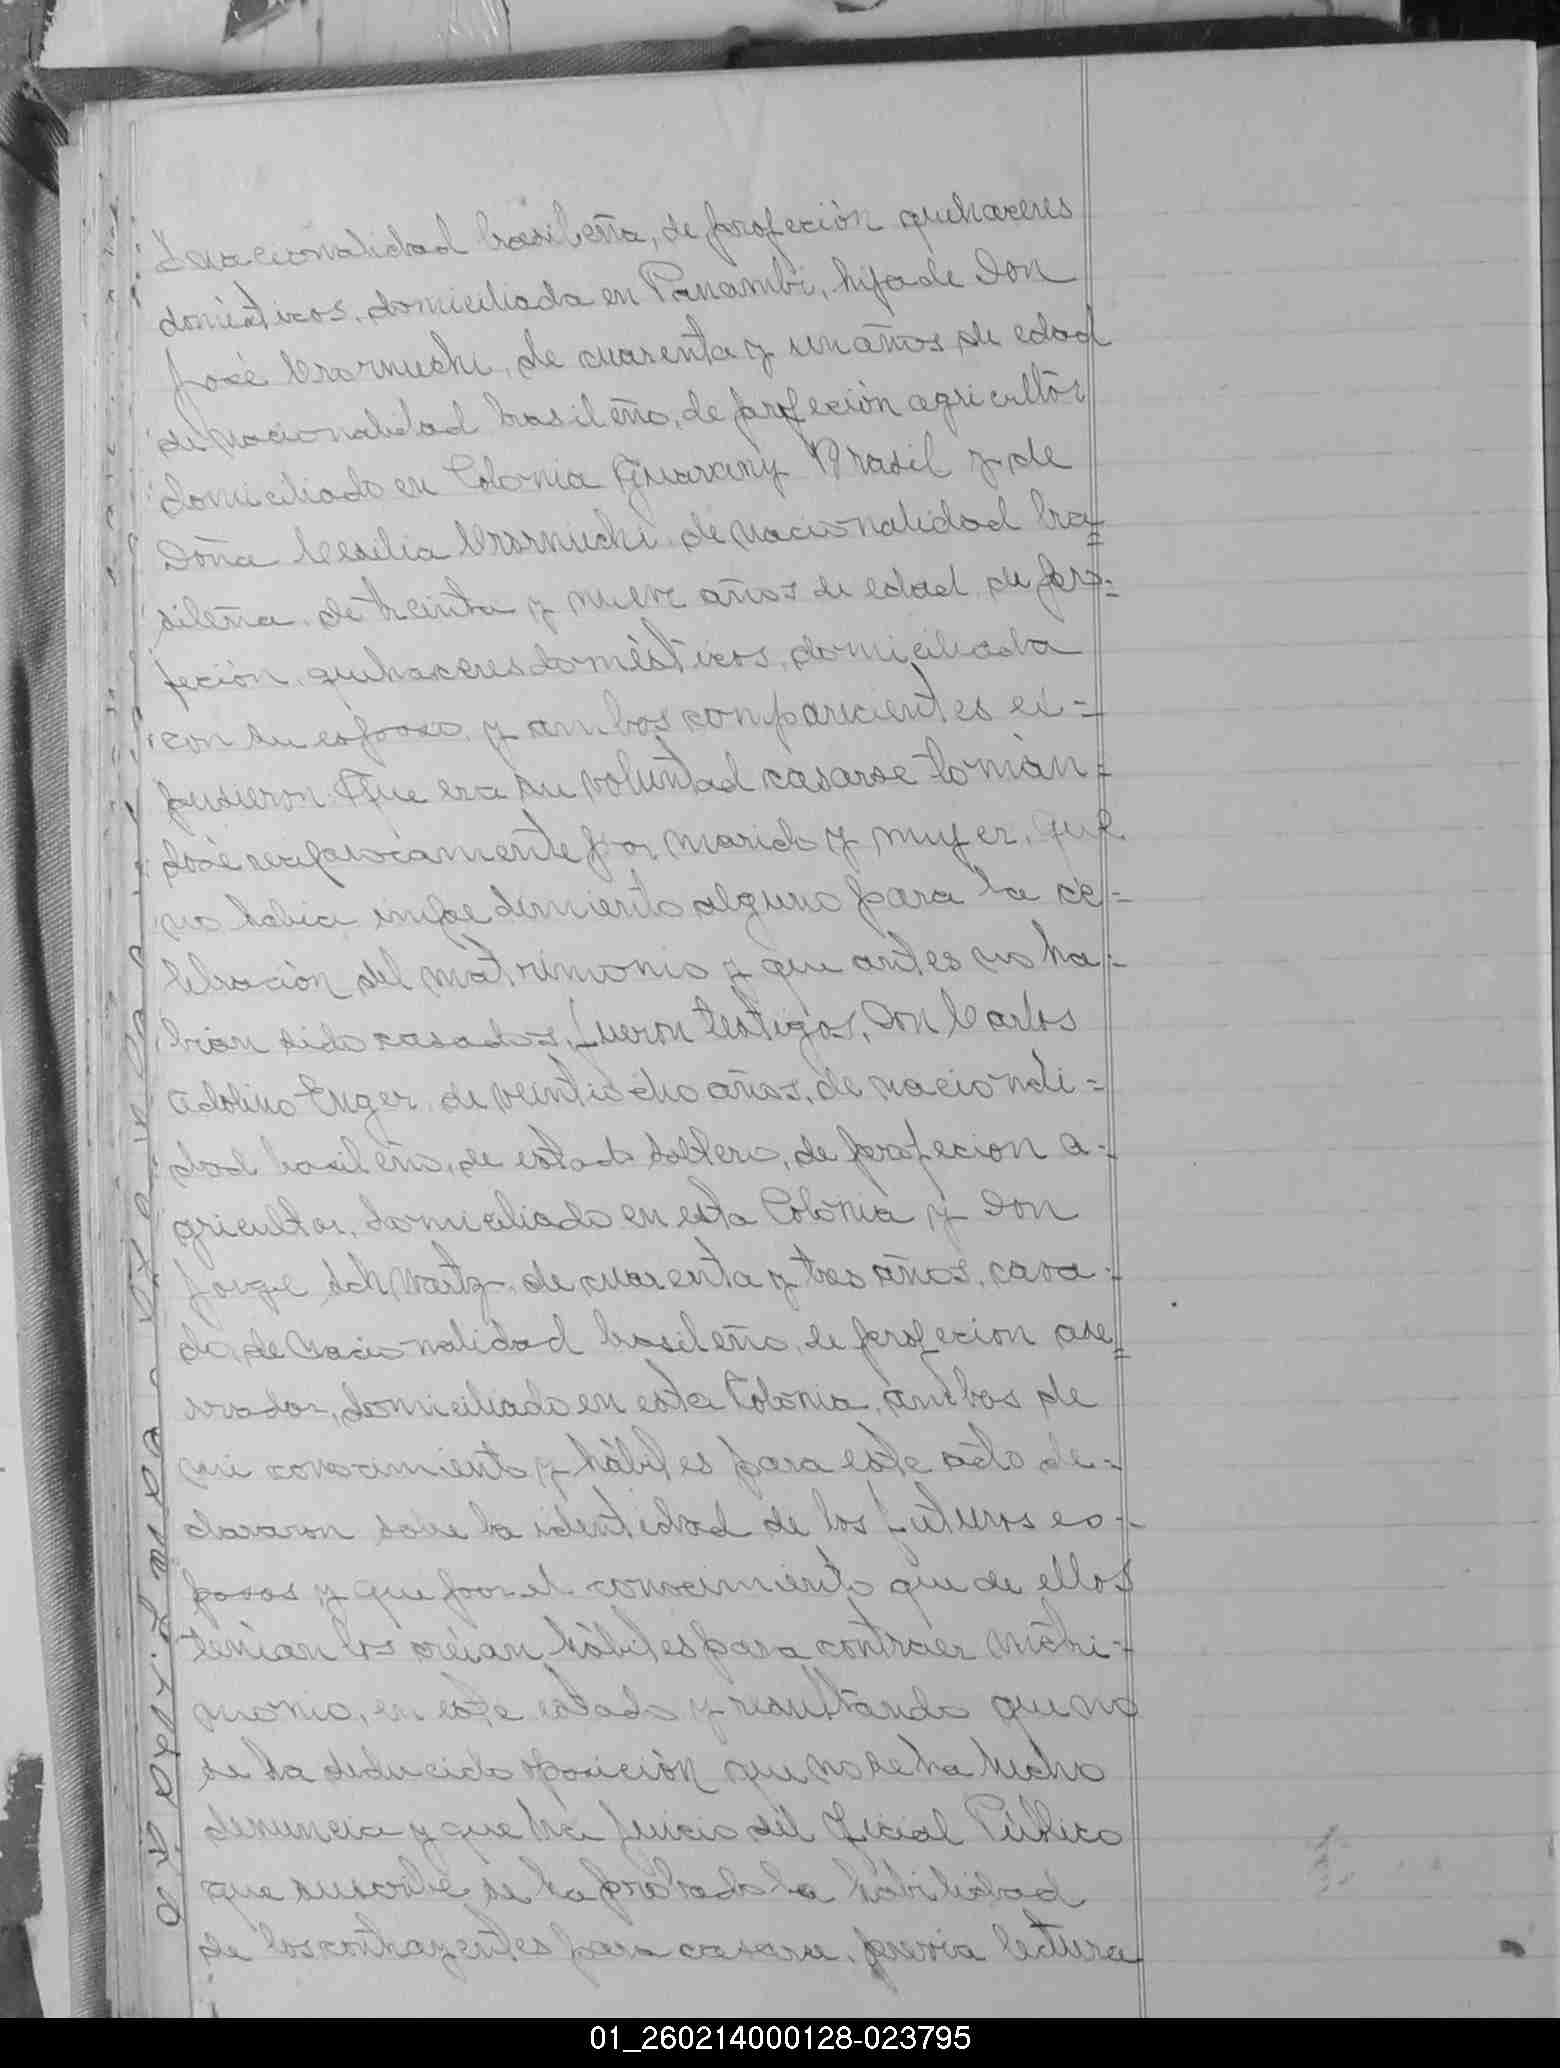 de nacionalidad brasileña, de profeción quehaceres
domésticos, domiciliada en Panambi, hija de Don
José Czarnuchi, de cuarenta y un años de edad
de nacionalidad brasileño, de profeción agricultor
domiciliado en Colonia Guarany Brasil y de
Doña Cesilia Czarnuchi de nacionalidad bra=
sileña de treinta y nueve años de edad, de pro=
feción quehaceres domésticos, domiciliada
con su esposo y ambos comparecientes ex=
pusieron Que era su voluntad casarse tomán=
dose reciprocamente por marido y mujer, que
no habia impedimiento alguno para la ce=
lebración del matrimonio y que antes no ha=
bian sido casados, fueron testigos, Don Carlos
Adolino Enger de veintiocho años, de nacionali=
dad brasileño, de estado soltero, de profecion a=
gricultor, domiciliado en esta Colonia y Don
Jorge Schwartz, de cuarenta y tres años, casa=
do, de nacionalidad brasileño, de profecion ase=
rrador, domiciliado en esta Colonia, ambos de
mi conocimiento y hábiles para este acto de=
clararon sobre la identidad de los futuros es=
posos y que por el conocimiento que de ellos
tenian los créian hábiles para contraer matri=
monio, en este estado y resultando que no
se ha deducido oposición que no se ha hecho
denuncia y que ha juicio del Oficial Público
que suscribe se ha probado la habilidad
de los contrayentes para casarse, previa lectura
01_260214000128-023795